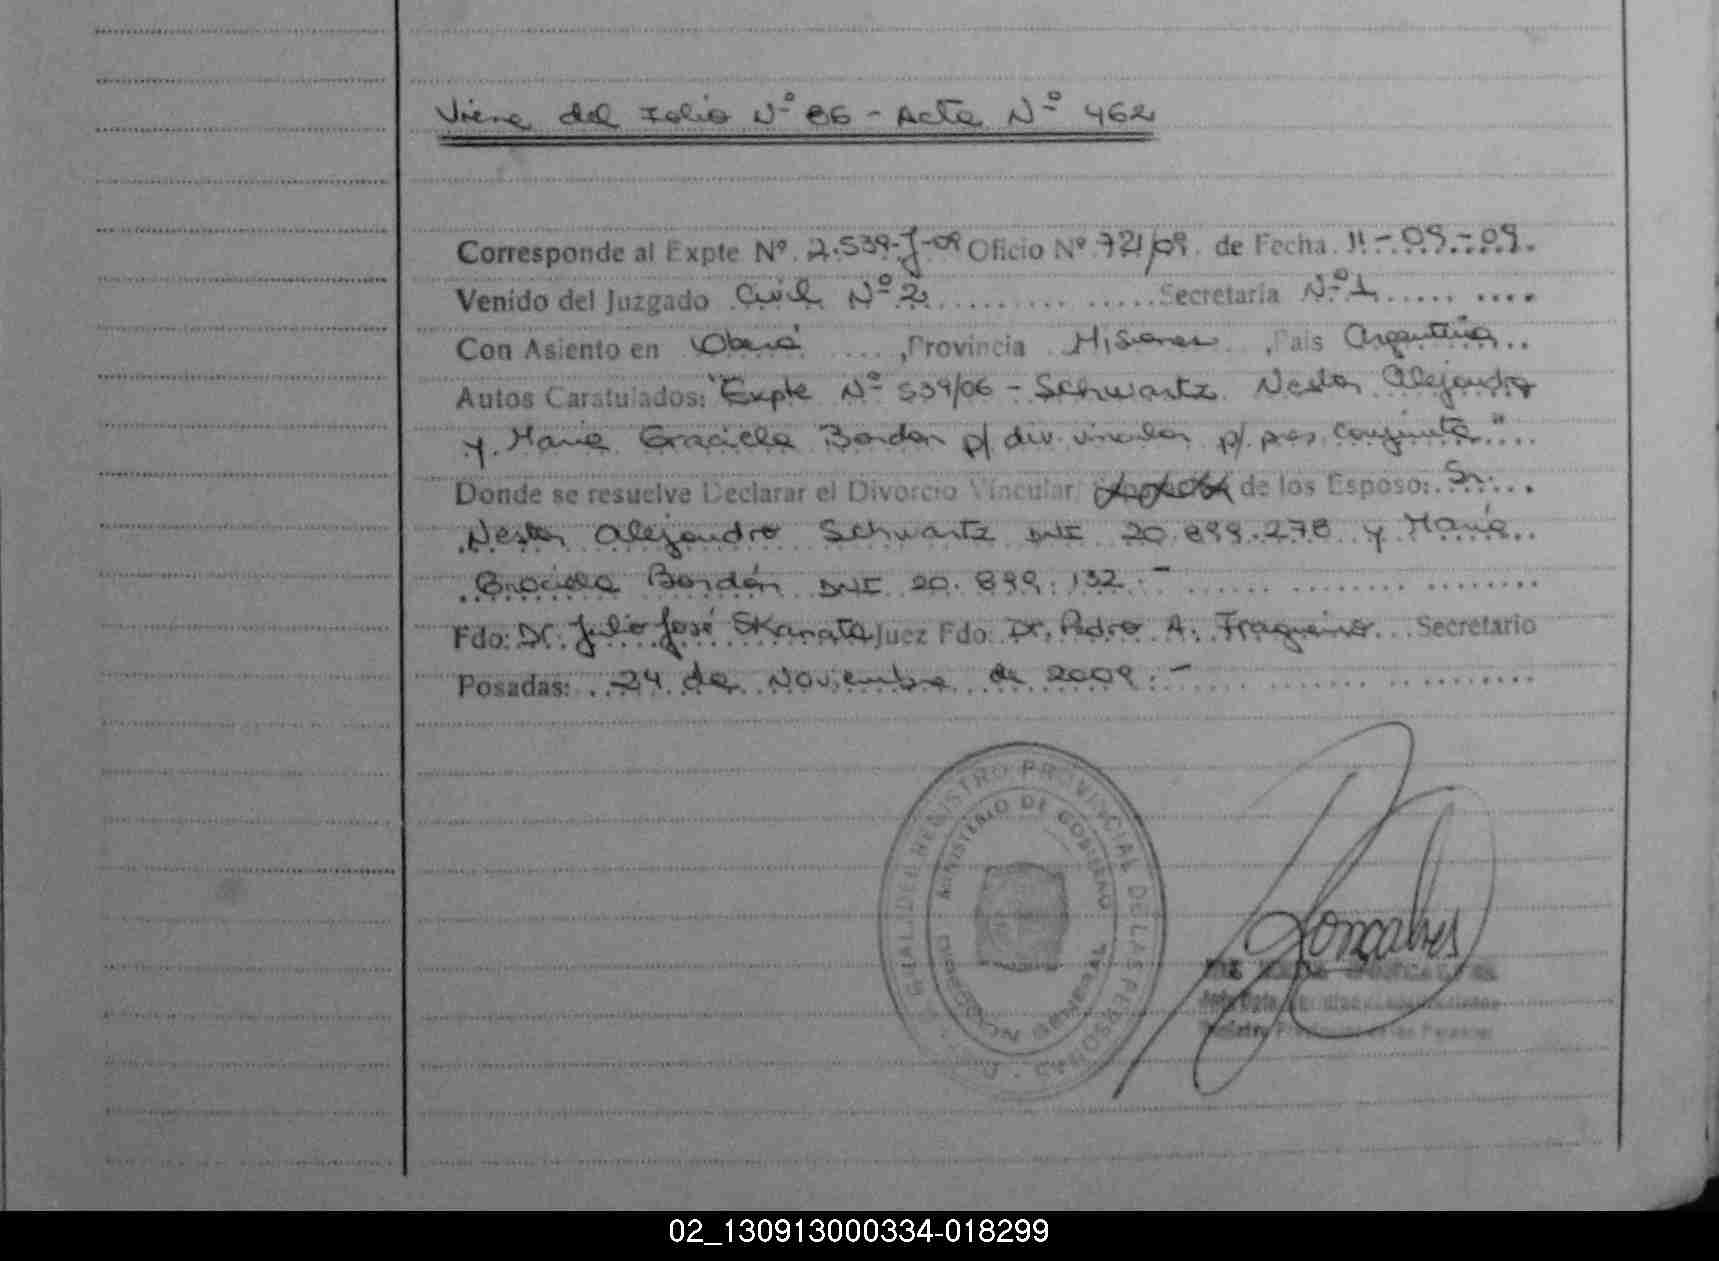 Viene del Folio Nº 86 - Acta Nº 462
Corresponde al Expte Nº. 2.539-J-09 Oficio Nº 721/09. de Fecha. 11-09-09.
Venido del Juzgado Civil Nº 2 Secretaria Nº 1
Con Asiento en Oberá, Provincia Misiones, Pais Argentina
Autos Caratulados: "Expte Nº 539/06 - Schwartz Nestor Alejandro
y Maria Graciela Bordon p/ div. vincular p/ pres. conjunta"
Donde se resuelve Declarar el Divorcio Vincular de los Esposo: Sr.
Nestor Alejandro Schwartz DNI 20.899.278 y Maria
Graciela Bordón DNI 20.899.132.-
Fdo: Dr. Julio José Skanata Juez Fdo: Dr. Pedro A. Fragueiro Secretario
Posadas: 24 de Noviembre de 2009.-
REGISTRO PROVINCIAL DE LAS PERSONAS
MINISTERIO DE GOBIERNO
DIRECCION GENERAL
Gonçalves
02_130913000334-018299